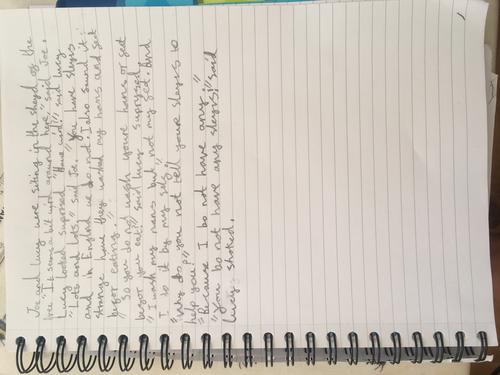 Joe and Lucy were siting in the shayd of the
tree "It seems a bit wird around here" said Joe.
Lucy looked suprosed "How wird?" said Lucy
"Lots and Lots," said Joe. "You have slayrs
and in England we do not. I also found it
strange how they washed my hans and feet
befor eating."
"So you do not wash youre hans or feet
befor you eat?" said Lucy suprosed.
"I wash my hans but not my feet. And
I do it by my self."
"Why do you not tell youre slayrs to
help you?"
"Because I bo not have any."
"You bo not have any slayrs!" said
Lucy shoked.